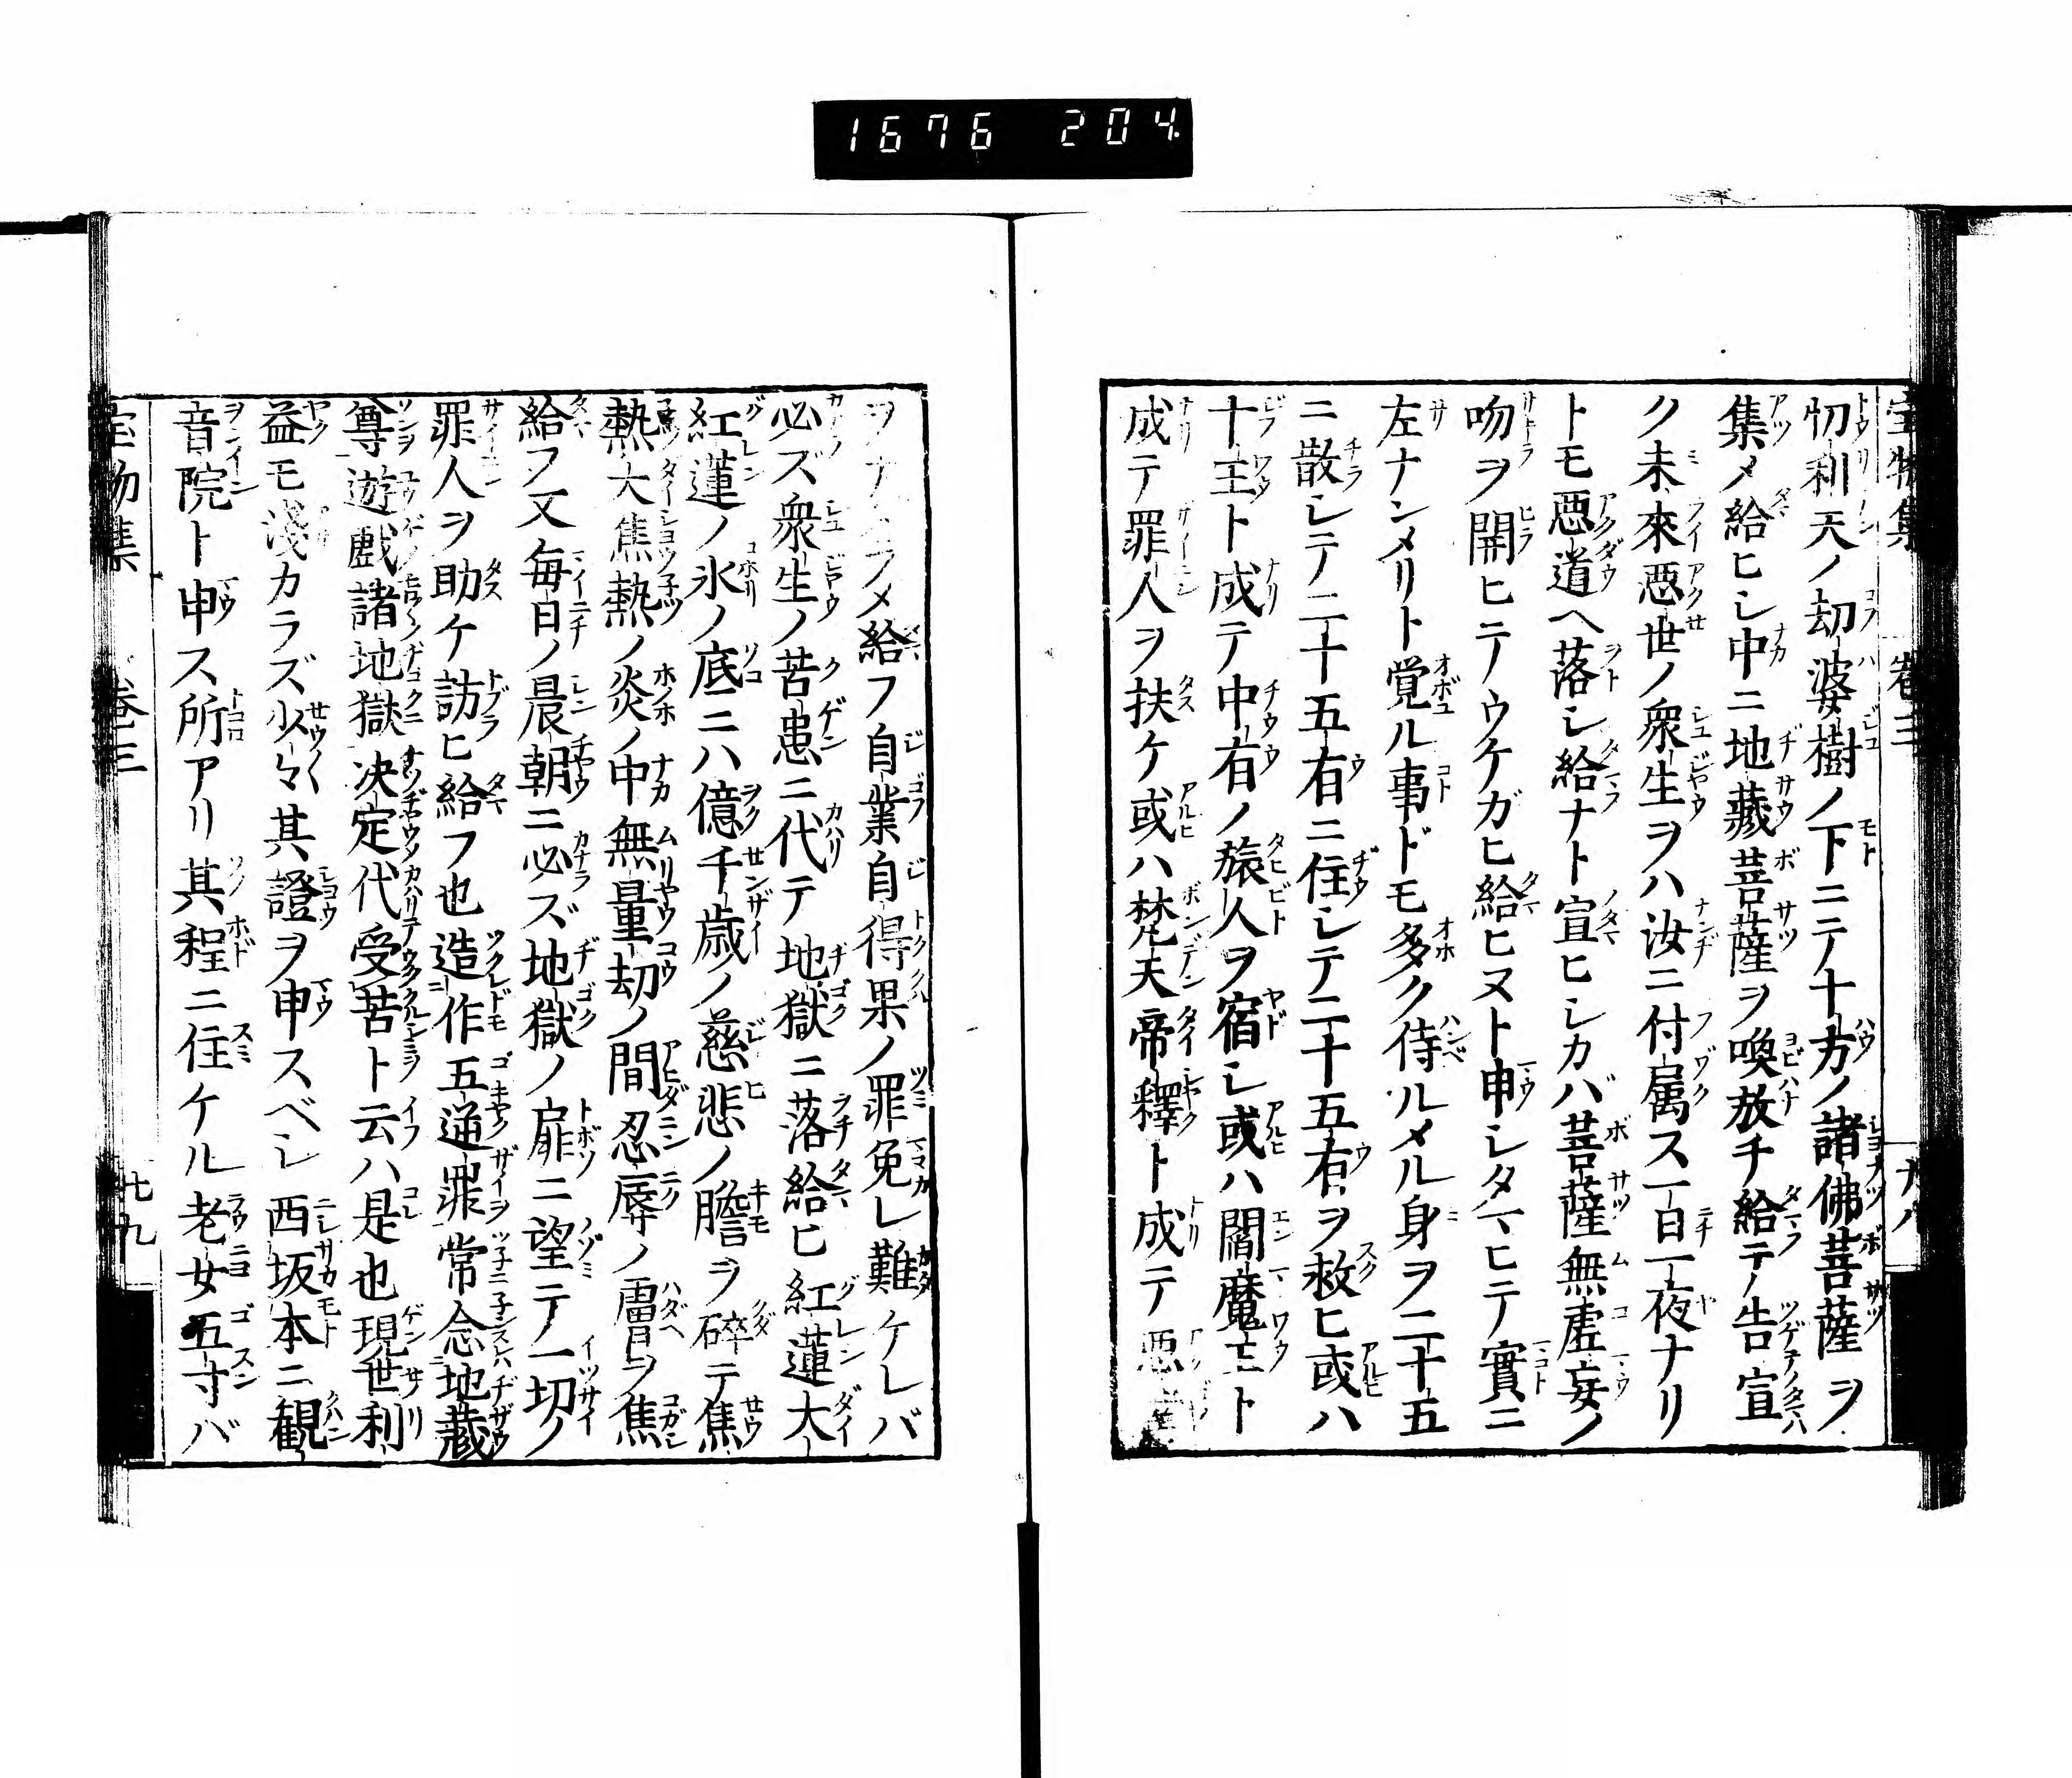 1676 204.
忉利天ノ劫婆樹ノ下ニテ十方ノ諸佛菩薩ヲ
集メ給ヒシ中ニ地藏菩薩ヲ喚放チ給テノ告宣
ク未來惡世ノ衆生ヲハ汝ニ付属ス一日一夜ナリ
トモ惡道ヘ落シ給ナト宣ヒシカバ菩薩無虚妄ノ
吻ヲ開ヒテウケガヒ給ヒヌト申シタマヒテ實ニ
左ナンメリト覚ル事ドモ多ク侍ルメル身ヲ二十五
ニ散シテ二十五有ニ住シテ二十五有ヲ救ヒ或ハ
十王ト成テ中有ノ旅人ヲ宿シ或ハ閻魔王ト
成テ罪人ヲ扶ケ或ハ梵天帝釋ト成テ惡
ラメ給フ自業自得果ノ罪免レ難ケレバ
必ズ衆生ノ苦患ニ代テ地獄ニ落給ヒ紅蓮大
紅蓮ノ氷ノ底ニハ億千歳ノ慈悲ノ膽ヲ碎テ焦
熱大焦熱ノ炎ノ中無量劫ノ間忍辱ノ膚ヲ焦
給フ又毎日ノ晨朝ニ必ズ地獄ノ扉ニ望テ一切ノ
罪人ヲ助ケ訪ヒ給フ也造作五逋罪常念地藏
尊遊戲諸地獄决定代受苦ト云ハ是也現世利
益モ淺カラズ少々其證ヲ申スベシ西坂本ニ観
音院ト申ス所アリ其程ニ住ケル老女五寸バ
宝物集 巻三 七九